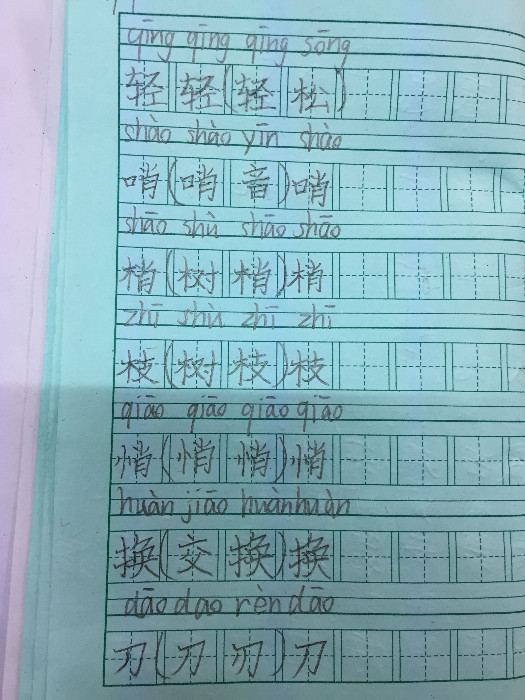 qīng qīng qīng sōng
轻轻(轻松)
shào shào yīn shào
哨(哨音)哨
shāo shù shāo shāo
梢(树梢)梢
zhī shù zhī zhī
枝(树枝)枝
qiāo qiāo qiāo qiāo
悄(悄悄)悄
huàn jiāo huàn huàn
换(交换)换
dāo dao rèn dāo
刀(刀刃)刀